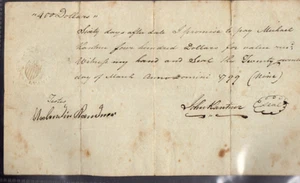 400 Dollars
Sixty days after date I promise to pay Michael
four hundred Dollars for value
Witness my hand and Seal the Twenty
day of March Anno Domini 1799 (Nine)
Teste
John Kantner
Seal